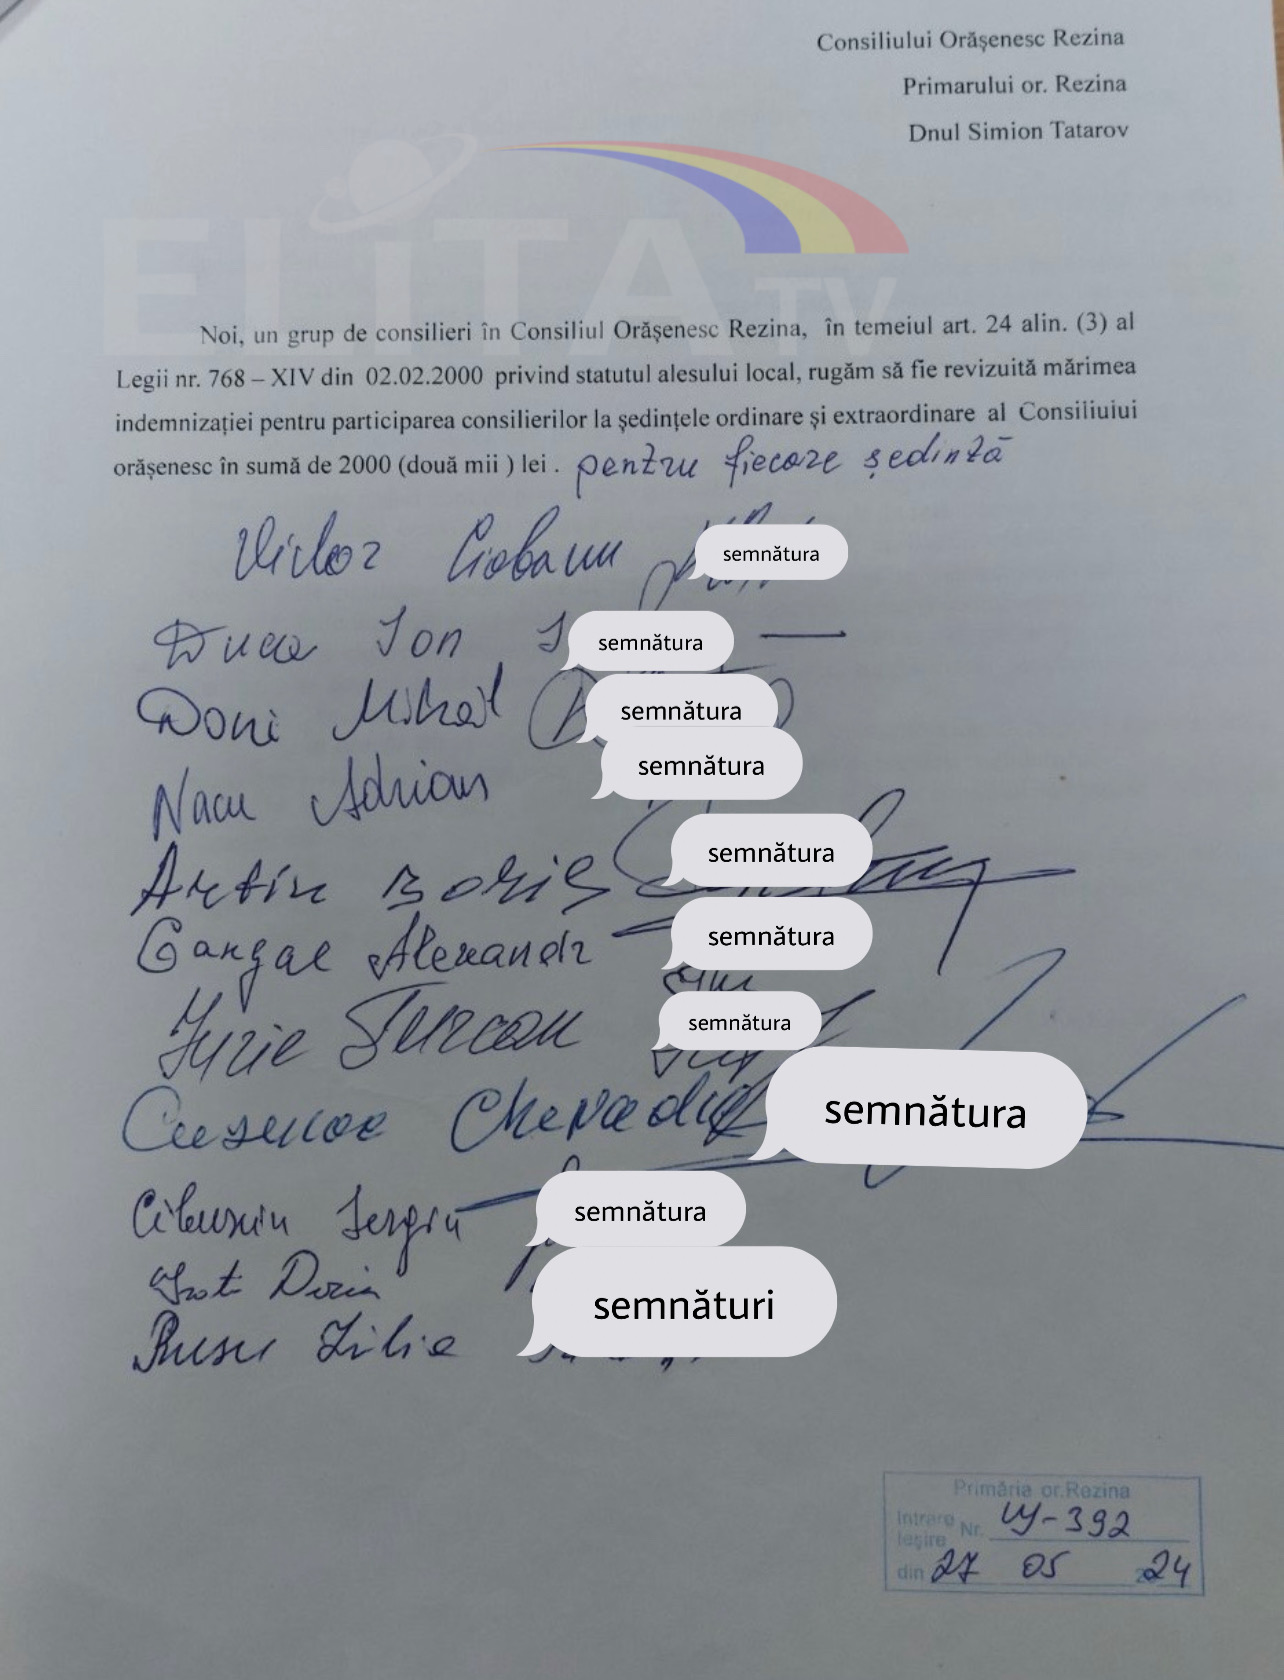 Consiliului Orășenesc Rezina
Primarului or. Rezina
Dnul Simion Tatarov
ELITA TV
Noi, un grup de consilieri în Consiliul Orășenesc Rezina, în temeiul art. 24 alin. (3) al
Legii nr. 768 – XIV din 02.02.2000 privind statutul alesului local, rugăm să fie revizuită mărimea
indemnizației pentru participarea consilierilor la ședințele ordinare și extraordinare al Consiliuiui
orășenesc în sumă de 2000 (două mii ) lei . pentru fiecare ședință
Victor Ciobanu semnătura
Duca Ion semnătura
Doni Mihail semnătura
Nacu Adrian semnătura
Artin Boris semnătura
Gangal Alexandr semnătura
Iurie Țurcan semnătura
semnătura
Sergiu semnătura
semnături
Rusu Lilia
Primăria or.Rezina
Intrare
Ieșire Nr. 392
din 27 05 24